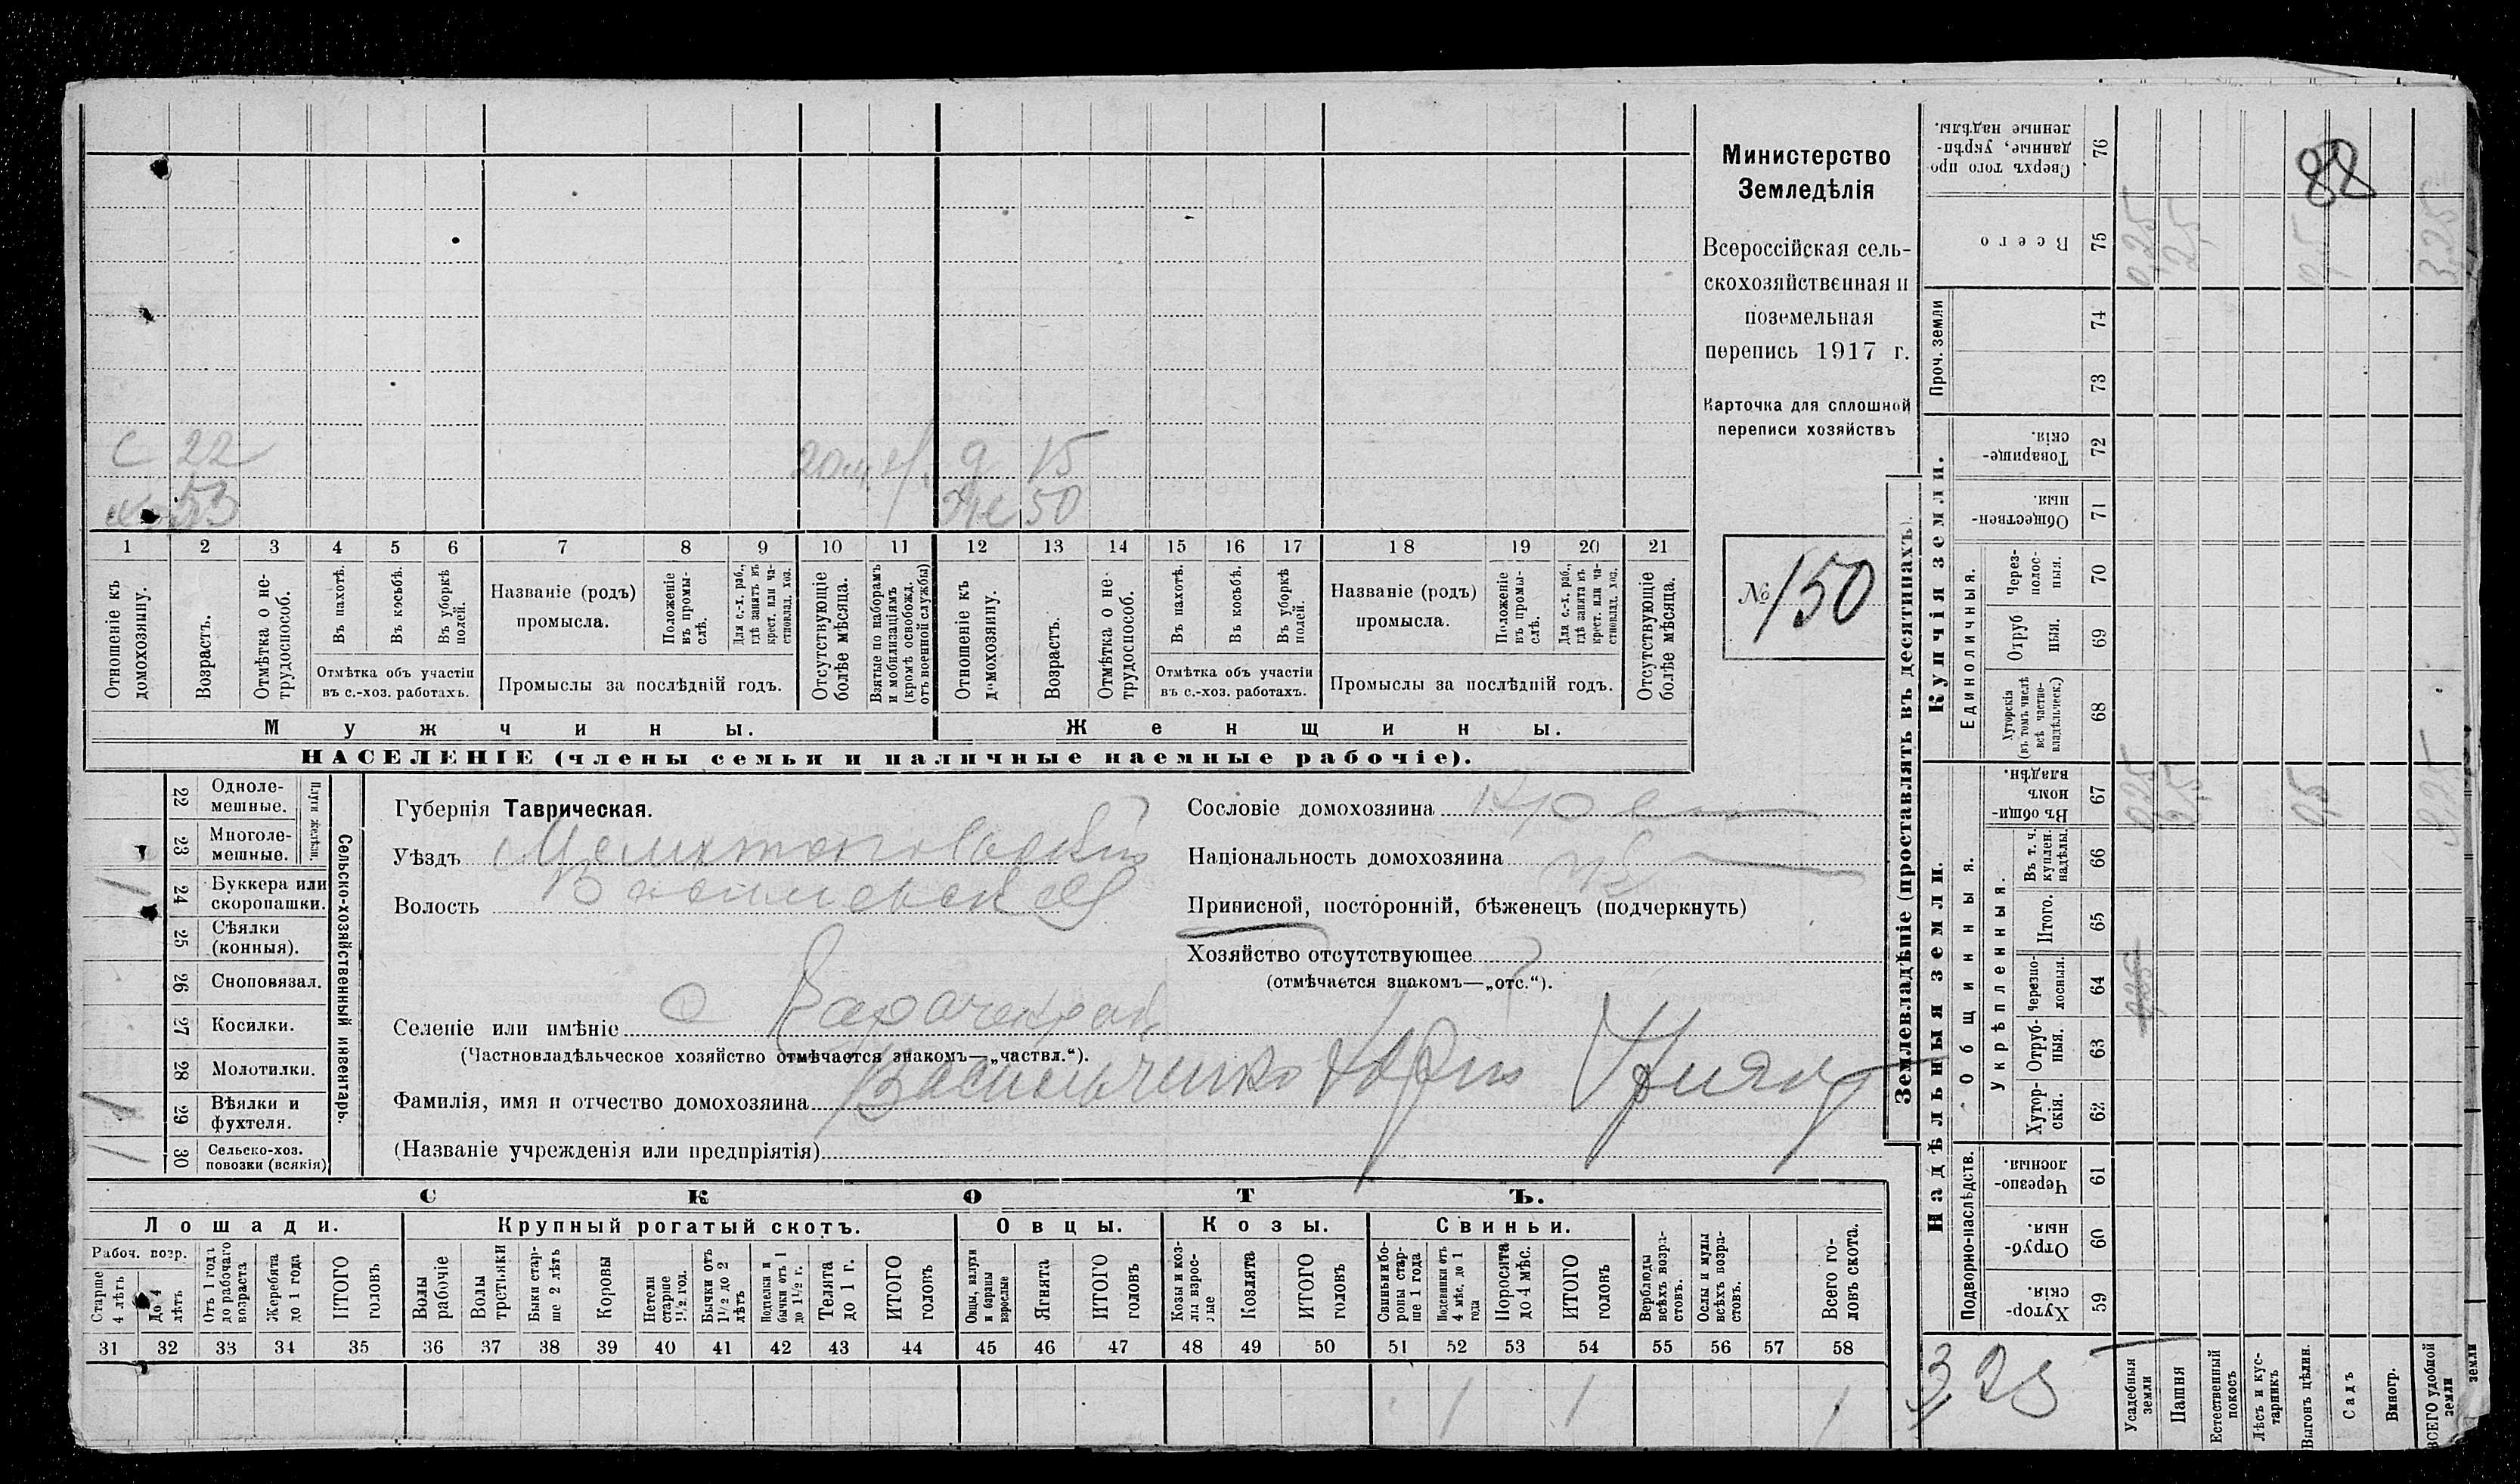 С 22 д 15
х 53 же 50
1 2 3 4 5 6 7 8 9 10 11 12 13 14 15 16 17 18 19 20 21
Отношеніе къ домохозяину.
Возрастъ.
Отмѣтка о нетрудоспособ.
Въ пахотѣ.
Въ косьбѣ.
Въ уборкѣ полей.
Отмѣтка объ участіи въ с.-хоз. работахъ.
Названіе (родъ) промысла.
Положеніе въ промыслѣ.
Для с.-х. раб., гдѣ занятъ въ крест. или частновлад. хоз.
Промыслы за послѣдній годъ.
Отсутствующіе болѣе мѣсяца.
Взятые по наборамъ и мобилизаціямъ (кромѣ освобожд. отъ военной службы)
Отношеніе къ домохозяину.
Возрастъ.
Отмѣтка о нетрудоспособ.
Въ пахотѣ.
Въ косьбѣ.
Въ уборкѣ полей.
Отмѣтка объ участіи въ с.-хоз. работахъ.
Названіе (родъ) промысла.
Положеніе въ промыслѣ.
Для с.-х. раб., гдѣ занята въ крест. или частновлад. хоз.
Промыслы за послѣдній годъ.
Отсутствующіе болѣе мѣсяца.
Мужчины.
Женщины.
НАСЕЛЕНІЕ (члены семьи и наличные наемные рабочіе).
Министерство
Земледѣлія
Всероссійская сель-
скохозяйственная и
поземельная
перепись 1917 г.
Карточка для сплошной
переписи хозяйствъ
№ 150
22 Одноле-мешные.
23 Многоле-мешные.
Плуги желѣзн.
24 Буккера или скоропашки. 1
25 Сѣялки (конныя).
26 Сноповязал.
27 Косилки.
28 Молотилки.
29 Вѣялки и фухтеля. 1
30 Сельско-хоз. повозки (всякія) 1
Сельско-хозяйственный инвентарь.
Губернія Таврическая.
Уѣздъ Мелитопольскій
Волость Васильевская
Селеніе или имѣніе с
(Частновладѣльческое хозяйство отмѣчается знакомъ—„частвл.“).
Фамилія, имя и отчество домохозяина Васильченко
(Названіе учрежденія или предпріятія)
Сословіе домохозяина кре
Національность домохозяина
Приписной, посторонній, бѣженецъ (подчеркнуть)
Хозяйство отсутствующее
(отмѣчается знакомъ—„отс.“).
СКОТЪ.
Лошади. Крупный рогатый скотъ. Овцы. Козы. Свиньи.
Рабоч. возр.
Старше 4 лѣтъ
До 4 лѣтъ
Отъ 1 года до рабочаго возраста
Жеребята до 1 года
ИТОГО головъ
Волы рабочіе
Волы третьяки
Быки старше 2 лѣтъ
Коровы
Нетели старше 1½ год.
Бычки отъ 1½ до 2 лѣтъ
Подтелки и бычки отъ 1 до 1½ г.
Телята до 1 г.
ИТОГО головъ
Овцы, валухи и бараны взрослые
Ягнята
ИТОГО головъ
Козы и козлы взрослые
Козлята
ИТОГО головъ
Свиньи и боровы старше 1 года
Подсвинки отъ 4 мѣс. до 1 года
Поросята до 4 мѣс.
ИТОГО головъ
Верблюды всѣхъ возрастовъ.
Ослы и мулы всѣхъ возрастовъ.
Всего головъ скота.
31 32 33 34 35 36 37 38 39 40 41 42 43 44 45 46 47 48 49 50 51 52 53 54 55 56 57 58
1 1 1
Землевладѣніе (проставлять въ десятинахъ).
88
Сверхъ того проданные, укрѣпленные надѣлы. 76
Всего 75 0,25 2,5 0,5 3,25
Проч. земли 74 73
Купчія земли.
Товарищескія. 72
Общественныя. 71
Единоличныя.
Черезполосныя. 70
Отрубныя. 69
Хуторскія (въ томъ числѣ всѣ частновладѣльческ.) 68
Надѣльныя земли.
Общинныя.
Въ общинномъ владѣн. 67 0,25 2,5 0,5 3,25
Укрѣпленныя.
Въ т. ч. куплен. надѣлы. 66
Итого. 65
Черезполосныя. 64
Отрубныя. 63
Хуторскія. 62
Подворно-наслѣдств.
Черезполосныя. 61
Отрубныя. 60
Хуторскія. 59
3 25
Усадебныя земли
Пашня
Естественный покосъ
Лѣсъ и кустарникъ
Выгонъ цѣлин.
Садъ
Виногр.
ВСЕГО удобной земли
земли